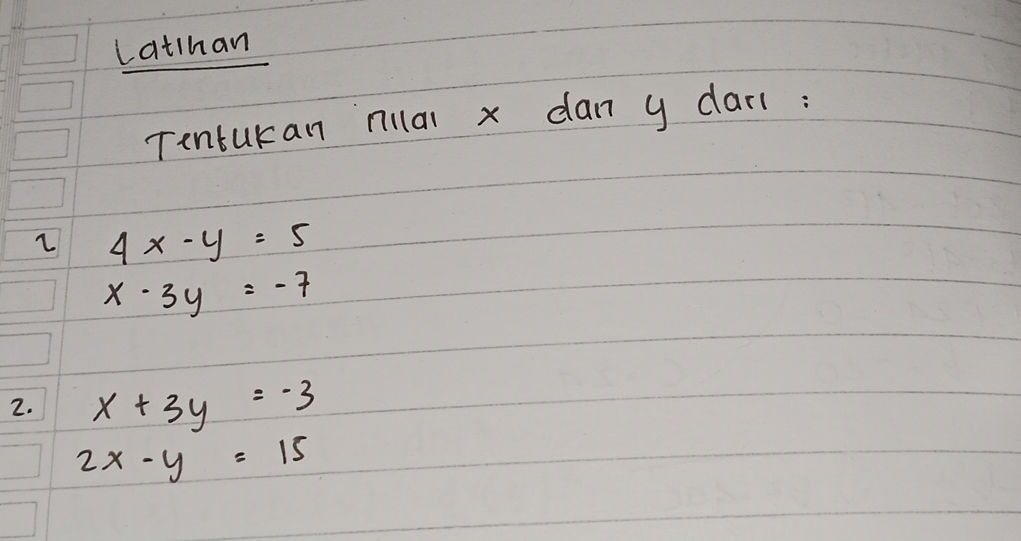 Latihan
Tentukan nilai x dan y dari :
1 4x - y = 5
x - 3y = -7
2. x + 3y = -3
2x - y = 15